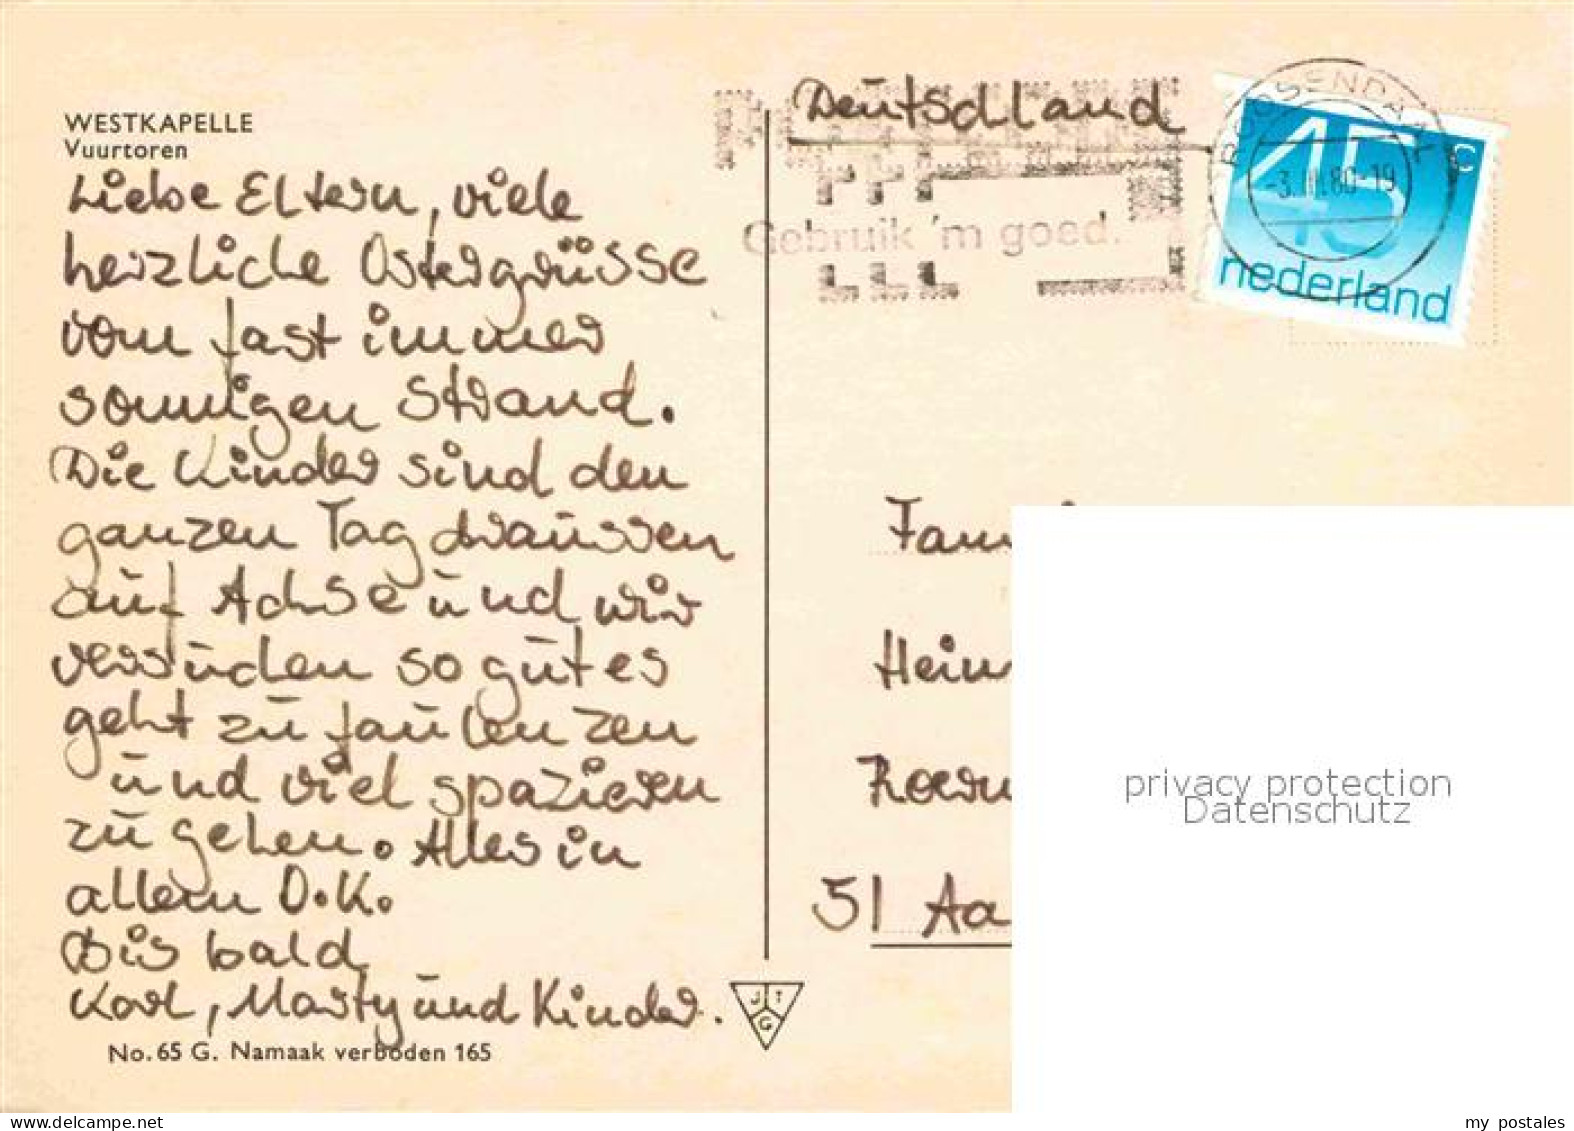 WESTKAPELLE
Vuurtoren
Liebe Eltern, viele
herzliche Ostergrüsse
vom fast immer
sonnigen Strand.
Die Kinder sind den
ganzen Tag draussen
auf Achse und wir
versuchen so gut es
geht zu faulenzen
und viel spazieren
zu gehen. Alles in
allem O.K.
Bis bald
Karl, Marty und Kinder.
No. 65 G. Namaak verboden 165
JTG
Deutschland
Gebruik 'm goed.
ROOSENDAAL
-3.III.80-19
45 c
nederland
Fam
Hein
Roerm
51 Aa
privacy protection
Datenschutz
my postales